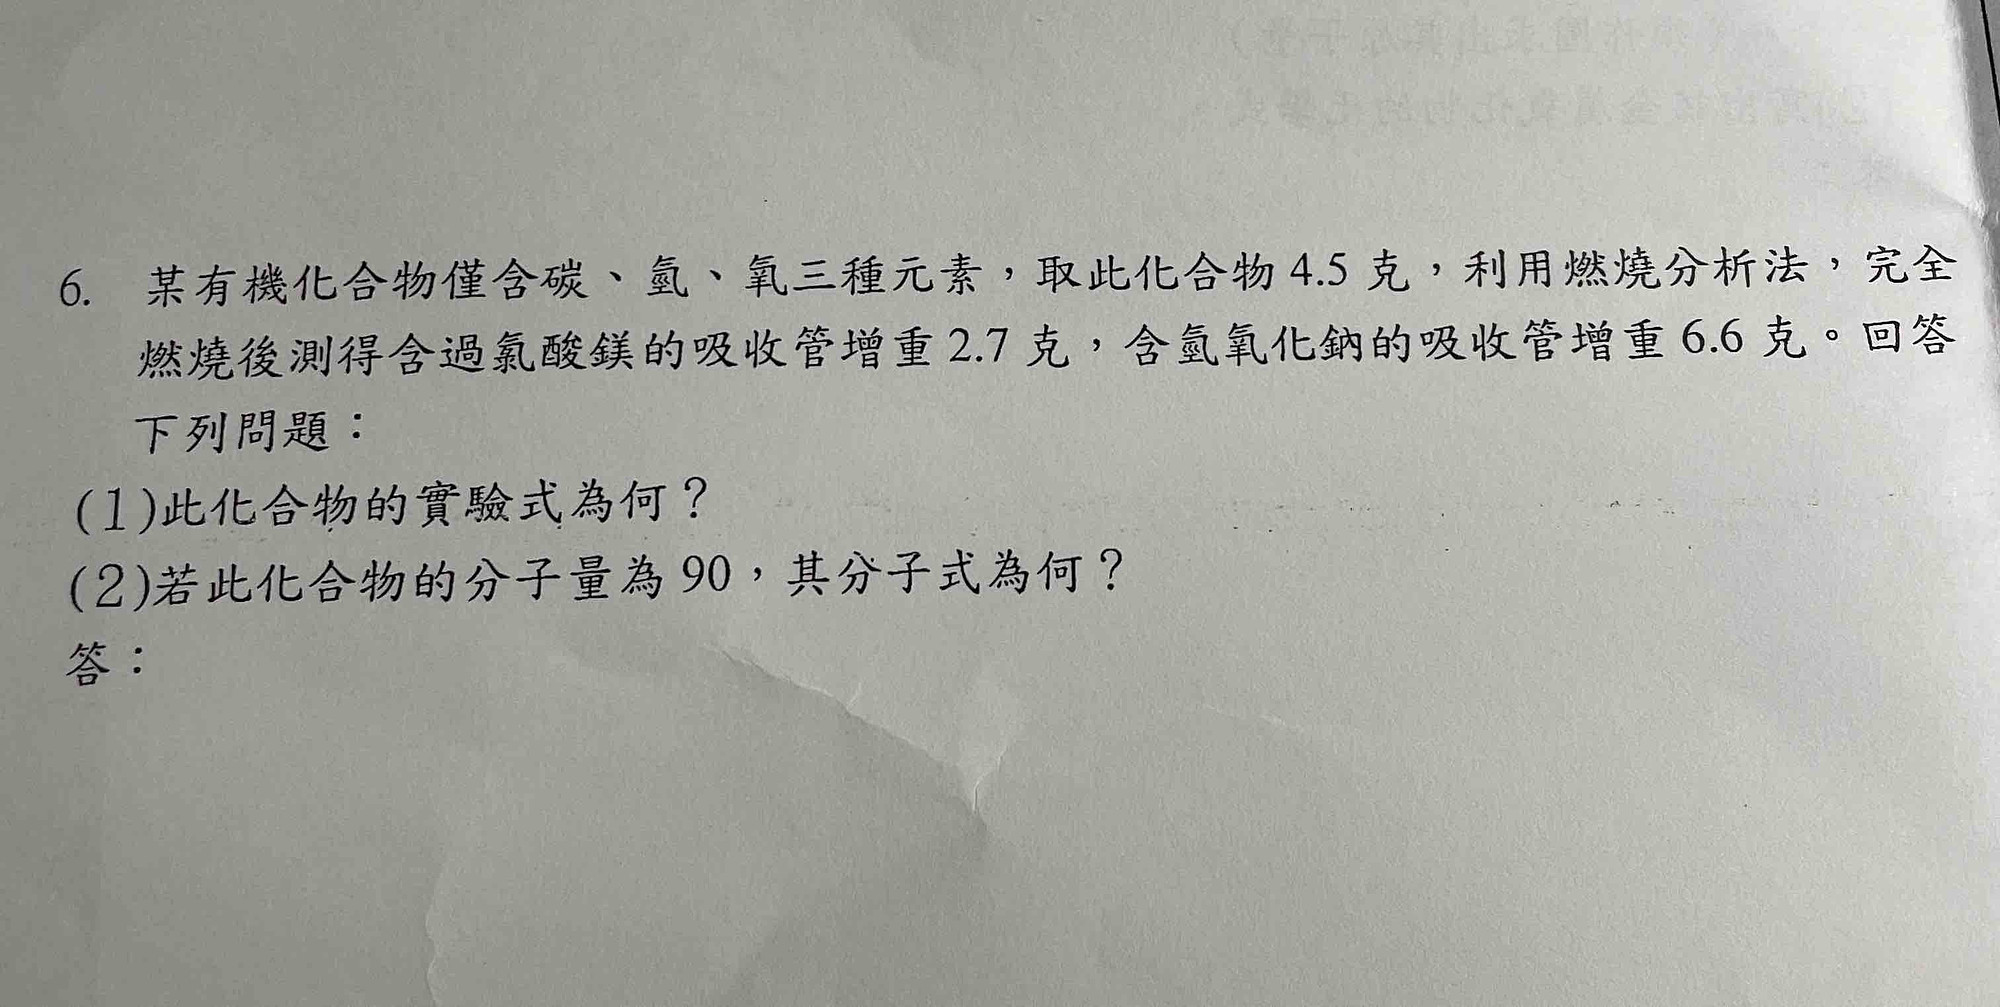 6. 某有機化合物僅含碳、氫、氧三種元素，取此化合物 4.5 克，利用燃燒分析法，完全
燃燒後測得含過氯酸鎂的吸收管增重 2.7 克，含氫氧化鈉的吸收管增重 6.6 克。回答
下列問題：
(1)此化合物的實驗式為何？
(2)若此化合物的分子量為 90，其分子式為何？
答：